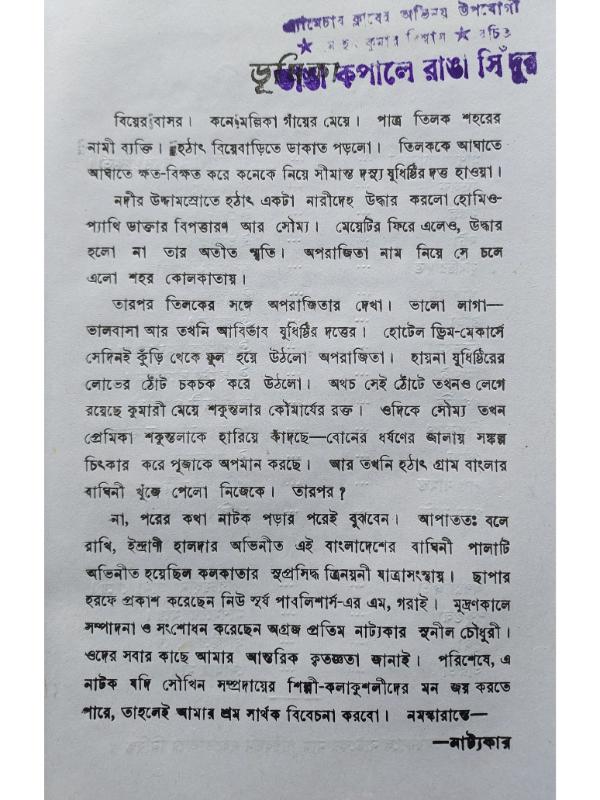 এ্যামেচার ক্লাবের অভিনয় উপযোগী
কুমার বিশ্বাস ★ রচিত
ভাঙা কপালে রাঙা সিঁদুর
ভূমিকা
বিয়ের বাসর। কনে মল্লিকা গাঁয়ের মেয়ে। পাত্র তিলক শহরের
নামী ব্যক্তি। হঠাৎ বিয়েবাড়িতে ডাকাত পড়লো। তিলককে আঘাতে
আঘাতে ক্ষত-বিক্ষত করে কনেকে নিয়ে সীমান্ত দস্যু যুধিষ্ঠির দত্ত হাওয়া।
নদীর উদ্দামস্রোতে হঠাৎ একটা নারীদেহ উদ্ধার করলো হোমিও-
প্যাথি ডাক্তার বিপত্তারণ আর সৌম্য। মেয়েটির ফিরে এলেও, উদ্ধার
হলো না তার অতীত স্মৃতি। অপরাজিতা নাম নিয়ে সে চলে
এলো শহর কোলকাতায়।
তারপর তিলকের সঙ্গে অপরাজিতার দেখা। ভালো লাগা—
ভালবাসা আর তখনি আবির্ভাব যুধিষ্ঠির দত্তের। হোটেল ড্রিম-মেকার্সে
সেদিনই কুঁড়ি থেকে ফুল হয়ে উঠলো অপরাজিতা। হায়না যুধিষ্ঠিরের
লোভের ঠোঁট চকচক করে উঠলো। অথচ সেই ঠোঁটে তখনও লেগে
রয়েছে কুমারী মেয়ে শকুন্তলার কৌমার্যের রক্ত। ওদিকে সৌম্য তখন
প্রেমিকা শকুন্তলাকে হারিয়ে কাঁদছে—বোনের ধর্ষণের জ্বালায় সঙ্কল্প
চিৎকার করে পূজাকে অপমান করছে। আর তখনি হঠাৎ গ্রাম বাংলার
বাঘিনী খুঁজে পেলো নিজেকে। তারপর?
না, পরের কথা নাটক পড়ার পরেই বুঝবেন। আপাততঃ বলে
রাখি, ইন্দ্রাণী হালদার অভিনীত এই বাংলাদেশের বাঘিনী পালাটি
অভিনীত হয়েছিল কলকাতার সুপ্রসিদ্ধ ত্রিনয়নী যাত্রাসংস্থায়। ছাপার
হরফে প্রকাশ করেছেন নিউ সূর্য পাবলিশার্স-এর এম, গরাই। মুদ্রণকালে
সম্পাদনা ও সংশোধন করেছেন অগ্রজ প্রতিম নাট্যকার সুনীল চৌধুরী।
ওদের সবার কাছে আমার আন্তরিক কৃতজ্ঞতা জানাই। পরিশেষে, এ
নাটক যদি সৌখিন সম্প্রদায়ের শিল্পী-কলাকুশলীদের মন জয় করতে
পারে, তাহলেই আমার শ্রম সার্থক বিবেচনা করবো। নমস্কারান্তে—
—নাট্যকার